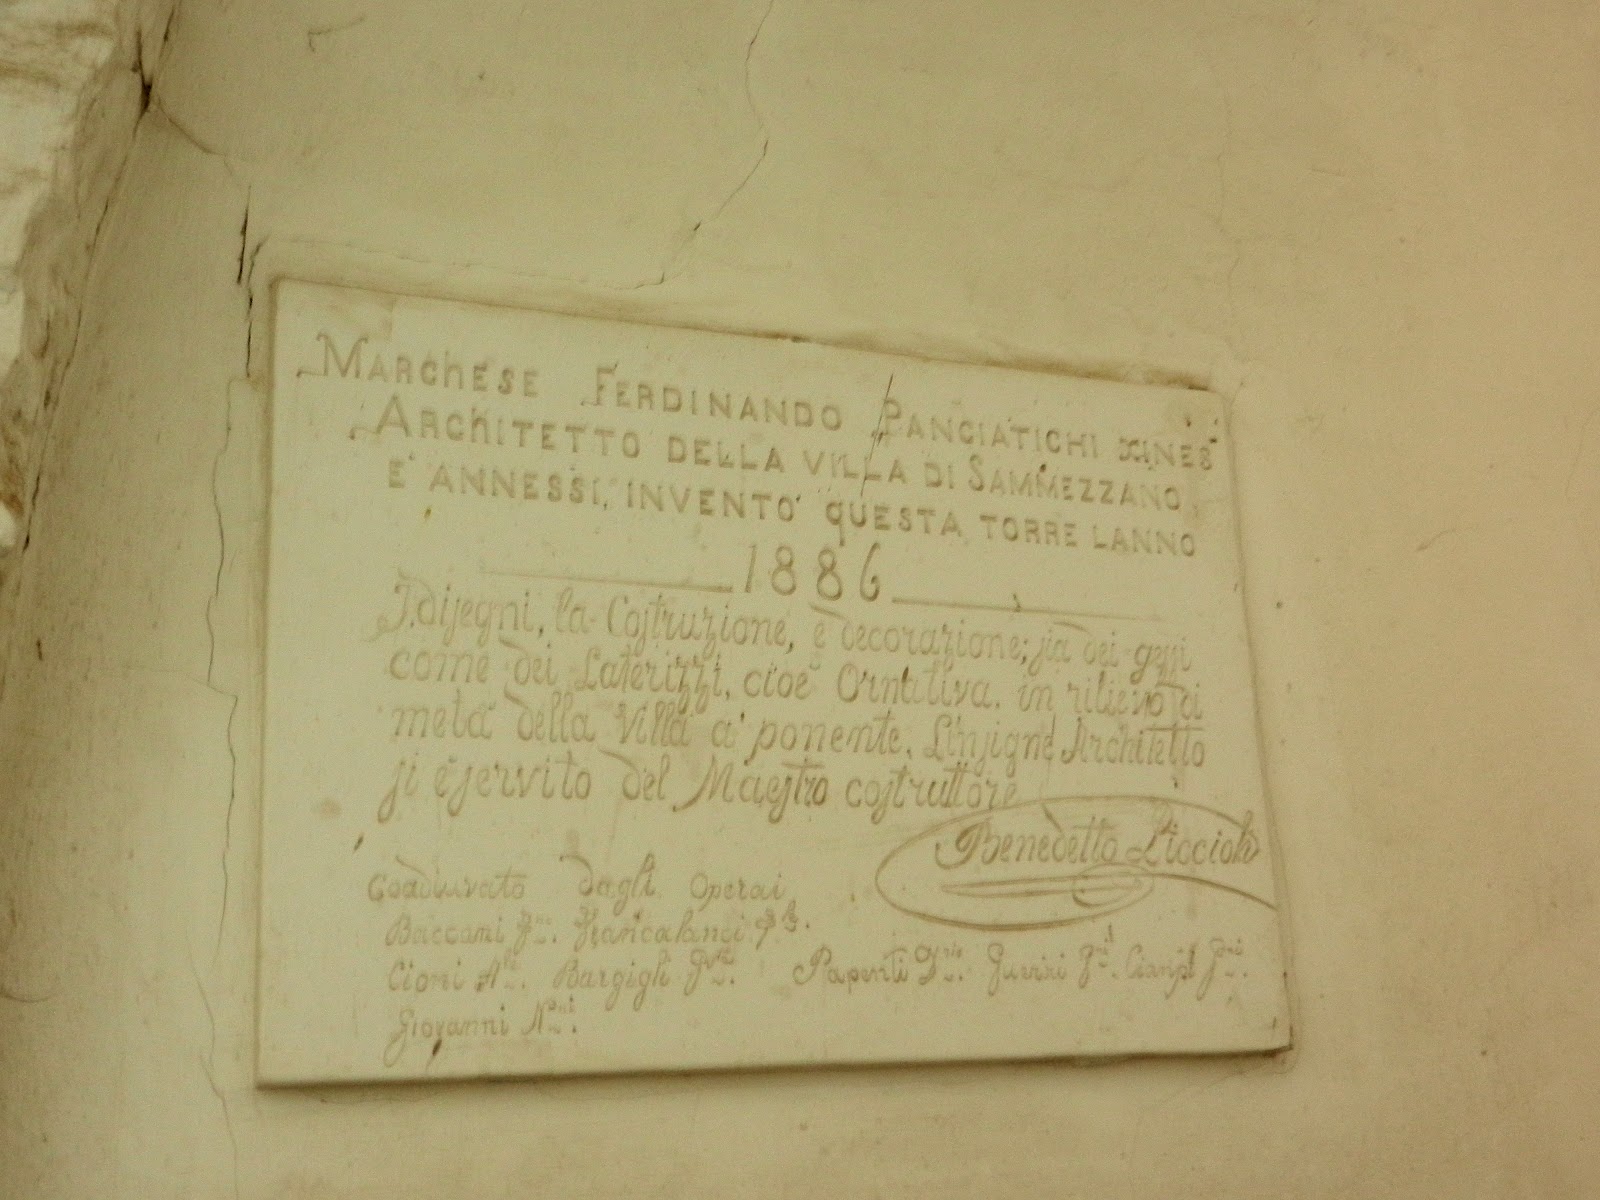 MARCHESE FERDINANDO PANCIATICHI XINES
ARCHITETTO DELLA VILLA DI SAMMEZZANO,
E' ANNESSI, INVENTO' QUESTA TORRE LANNO
1886
I disegni, la Costruzione, e decorazione; sia dei gessi
come dei Laterizzi, cioè Ornativa. in rilievo di
metà della Villa a' ponente, L'insigne Architetto
si è servito del Maestro costruttore
Benedetto Liccioli
Coadiuvato dagli Operai
Baccani Francalanci
Cioni Bargigli
Giovanni